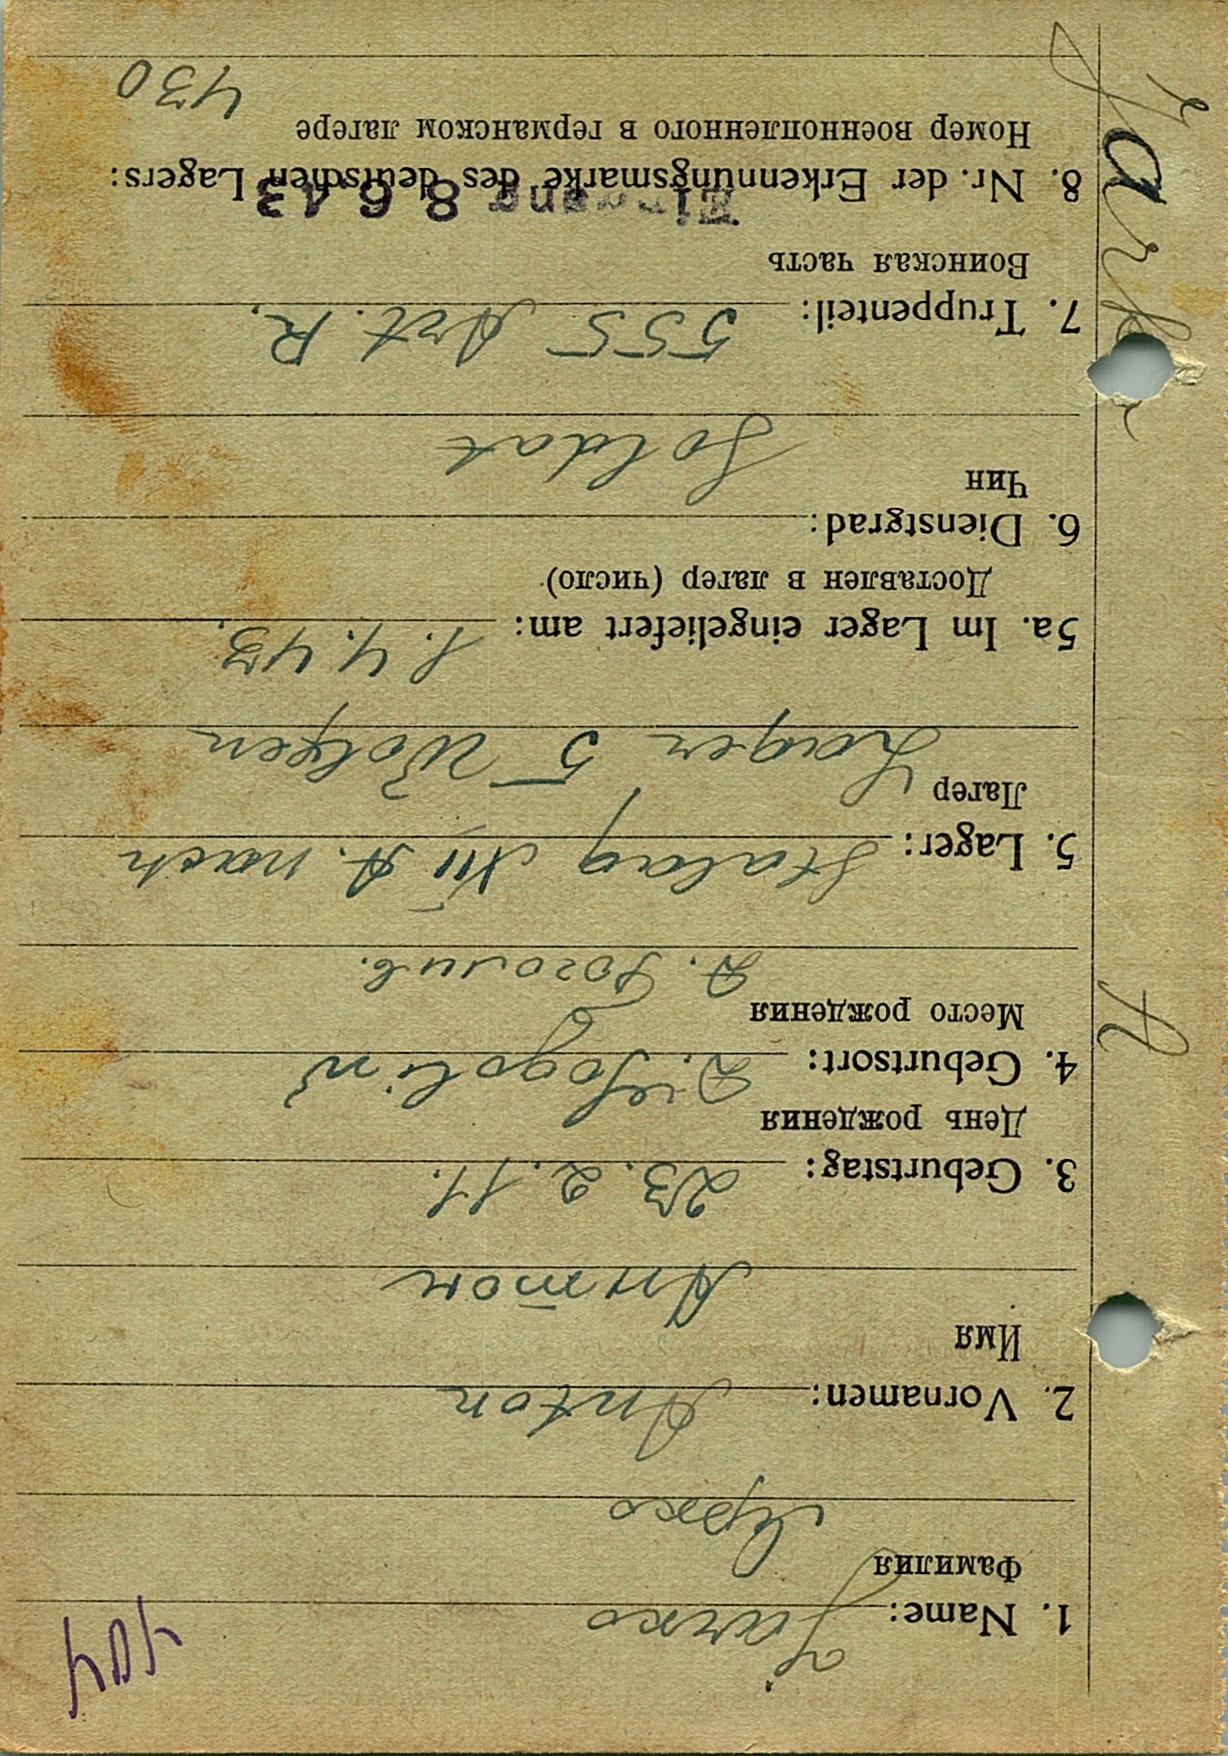 404
1. Name: Jarko
Фамилия
Ярко
2. Vornamen: Anton
Имя
Антон
3. Geburtstag: 23.2.11.
День рождения
4. Geburtsort: D. Gogolin
Место рождения
Д. Гоголив.
5. Lager: Stalag XII A. nach
Лагер
Lager 5 Wolfen
5a. Im Lager eingeliefert am: 1.4.43.
Доставлен в лагер (число)
6. Dienstgrad:
Чин
Soldat
7. Truppenteil: 555 Art. R.
Воинская часть
Eingang 8.6.43
8. Nr. der Erkennungsmarke des deutschen Lagers:
Номер военнопленного в германском лагере
430
A